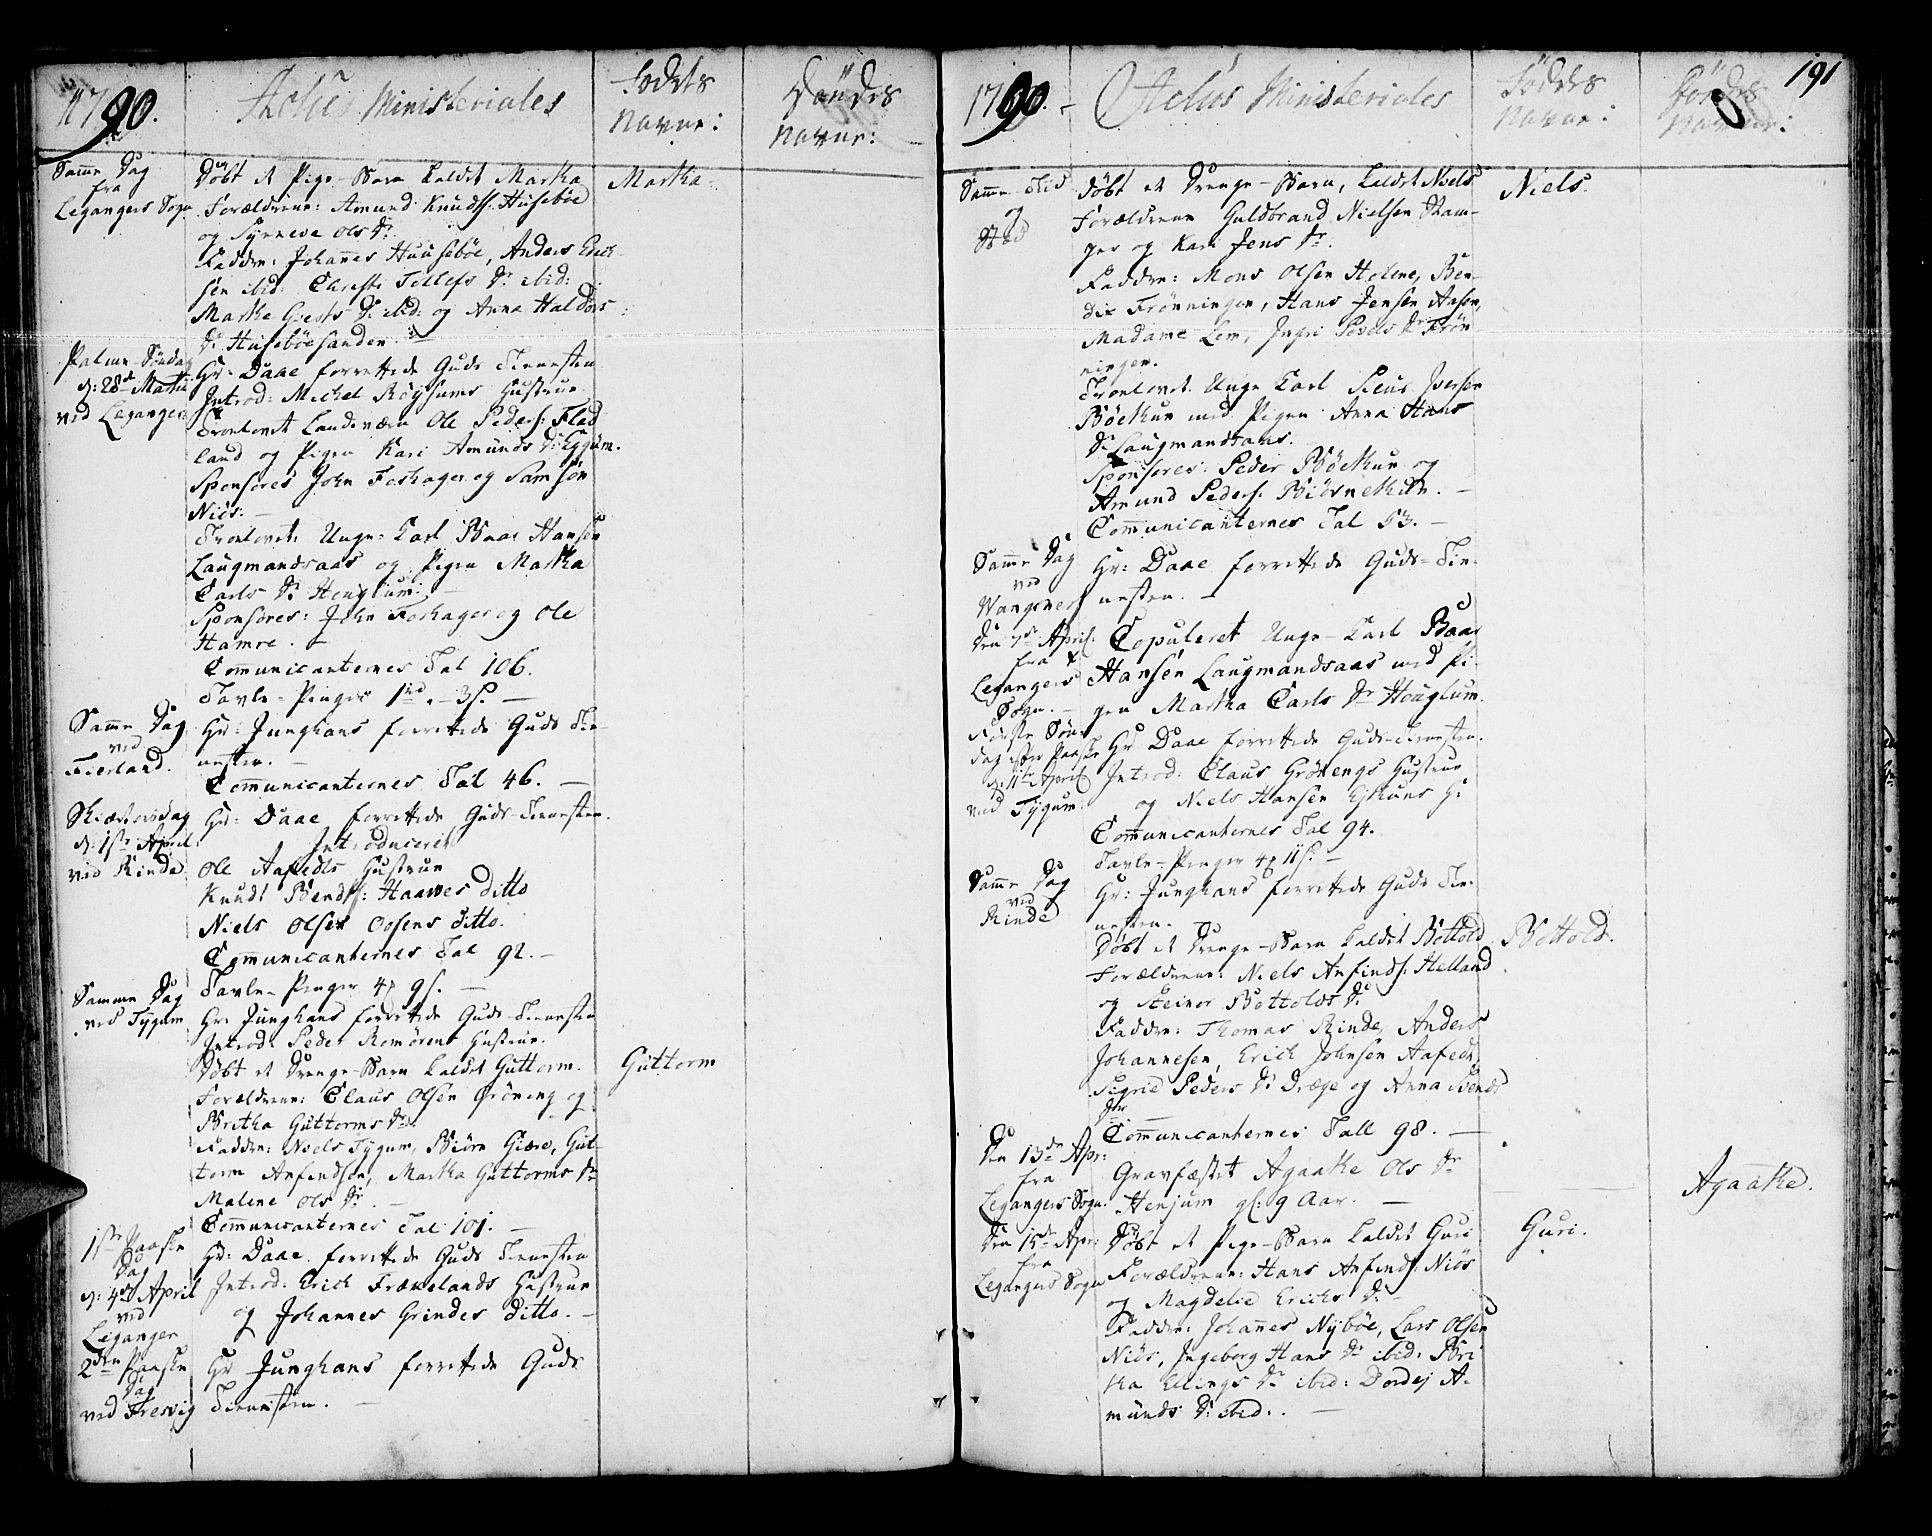 1790.
Actus Ministeriales
Fødets Navne:
Dødes Navne:
Samme Dag
fra
Legangers Sogn
Døbt et Pige-Barn kaldet Martha
Forældrene: Amund Knuds. Husebøe
og Synneve Ols Dr.
Faddre: Johannes Huusebøe, Anders Erich-
sen ibid: Christi Tollefs Dr. ibid:
Martha Giests Dr. ibid: og Anna Haldors
Dr. Husebøesanden.
Martha.
Palme-Søndag
d: 28de Martii
ved Leganger
Hr: Daae forrettede Guds Tienesten
Introd: Michel Røysums Hustrue
Trolovet Landeværn Ole Peders. Flad
land og Pigen Kari Amunds Dr. Eggum.
Sponsores John Foshager og Samson
Niøs. -
Trolovet Unge-Karl Baar Hansen
Laugmandsaas og Pigen Martha
Carls Dr. Houglum. -
Sponsores: John Foshager og Ole
Hamre. -
Communicanternes Tal 106.
Tavle-Penger 1rd - 3s. -
Samme Dag
ved
Fierland.
Hr: Junghans forrettede Guds Tie-
nesten. -
Communicanternes Tal 46. -
Skiærtorsdag
d: 1ste April
ved Rinde
Hr: Daae forrettede Guds-Tienesten.
Introduceret
Ole Aafedts Hustrue
Knudt Bendts: Haawes ditto
Niels Olsen Oosens ditto.
Communicanternes Tal 92. -
Tavle-Penger 4 9s. -
Samme Dag
ved Tygum
Hr: Junghans forrettede Guds-Tienesten
Introd: Peder Romørens Hustrue.
Døbt et Drenge-Barn kaldet Guttorm.
Forældrene: Claus Olsen Grøneng og
Britha Guttorms Dr.
Faddre: Niels Tygum, Biørn Giære, Gut-
torm Anfindsen, Martha Guttorms Dr.
Malene Ols Dr. -
Communicanternes Tal 101. -
Guttorm
1ste Paaske
Dag
d: 4de April
ved
Leganger
Hr: Daae forrettede Guds Tienesten
Introd: Erich Frænelands Hustrue
og Johannes Grindes ditto. -
2den Paaske
Dag
ved Fresvig
Hr Junghans forrettede Guds
Tienesten. -
1790. -
Actus Ministeriales
Føddes Navne:
Dødes Navne:
191
Samme Tid
og
Stæd
Døbt et Drenge-Barn, kaldet Niels
Forældrene Guldbrand Nielsen Stam-
ger og Kari Jens Dr.
Faddre: Mons Olsen Helene, Ben-
dix Frønningen, Hans Jensen Aasen,
Madame Lem, Ingri Povels Dr. Frøn
ningen.
Trolovet Unge Karl Siur Iversen
Bøethun med Pigen Anna Hans
Dr. Laugmandsaas.
Sponsores: Peder Bøethun og
Amund Peders. Biørnethun. -
Communicanternes Tal 53. -
Niels.
Samme Dag
ved
Wangsnes
Hr: Daae forrettede Guds-Tie-
nesten. -
Den 7de April
fra
Legangers
Sogn. -
Copuleret Unge-Karl Baar
Hansen Laugmandsaas med Pi-
gen Martha Carls Dr Houglum.
Første Søn-
dag efter Paaske
d: 11te April
ved Tygum
Hr Daae forrettede Guds-Tienesten.
Introd: Claus Grønengs Hustrue
og Niels Hansen Ejthuns H:
Communicanternes Tal 94.
Tavle-Penger 4 11s. -
Samme Dag
ved
Rinde
Hr: Junghans forrettede Guds Tie-
nesten.
Døbt et Drenge-Barn kaldet Bottold
Forældrene: Niels Anfinds. Helland
og Steinor Bottolds Dr.
Faddre: Thomas Rinde, Anders
Johannesen, Erich Johnsen Aafedt,
Sigrid Peders Dr. Dræge og Anna Svends
Dtr
Communicanternes Tall 98. -
Bottold.
Den 13de Apr:
fra
Legangers Sogn.
Gravfæstet Agaathe Ols Dr
Henjum gl: 9 Aar. -
Agaathe.
Den 15de Apr:
fra
Legangers Sogn
Døbt et Pige-Barn kaldet Guri
Forældrene: Hans Anfinds: Niøs
og Magdelie Erichs Dr. -
Faddre: Johannes Nybøe, Lars Olsen
Niøs, Ingeborg Hans Dr ibid: Bri
tha Ellings Dr ibid: Dordej A-
munds Dr: ibid: . -
Guri.